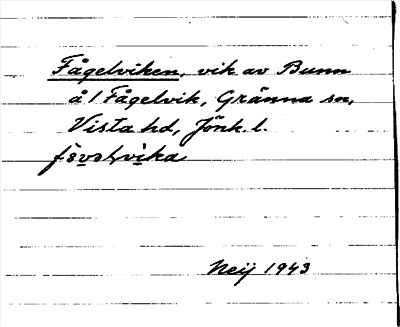 Fågelviken, vik av Bunn
å l Fågelvik, Gränna sn,
Vista hd, Jönk. l.
Neij 1943